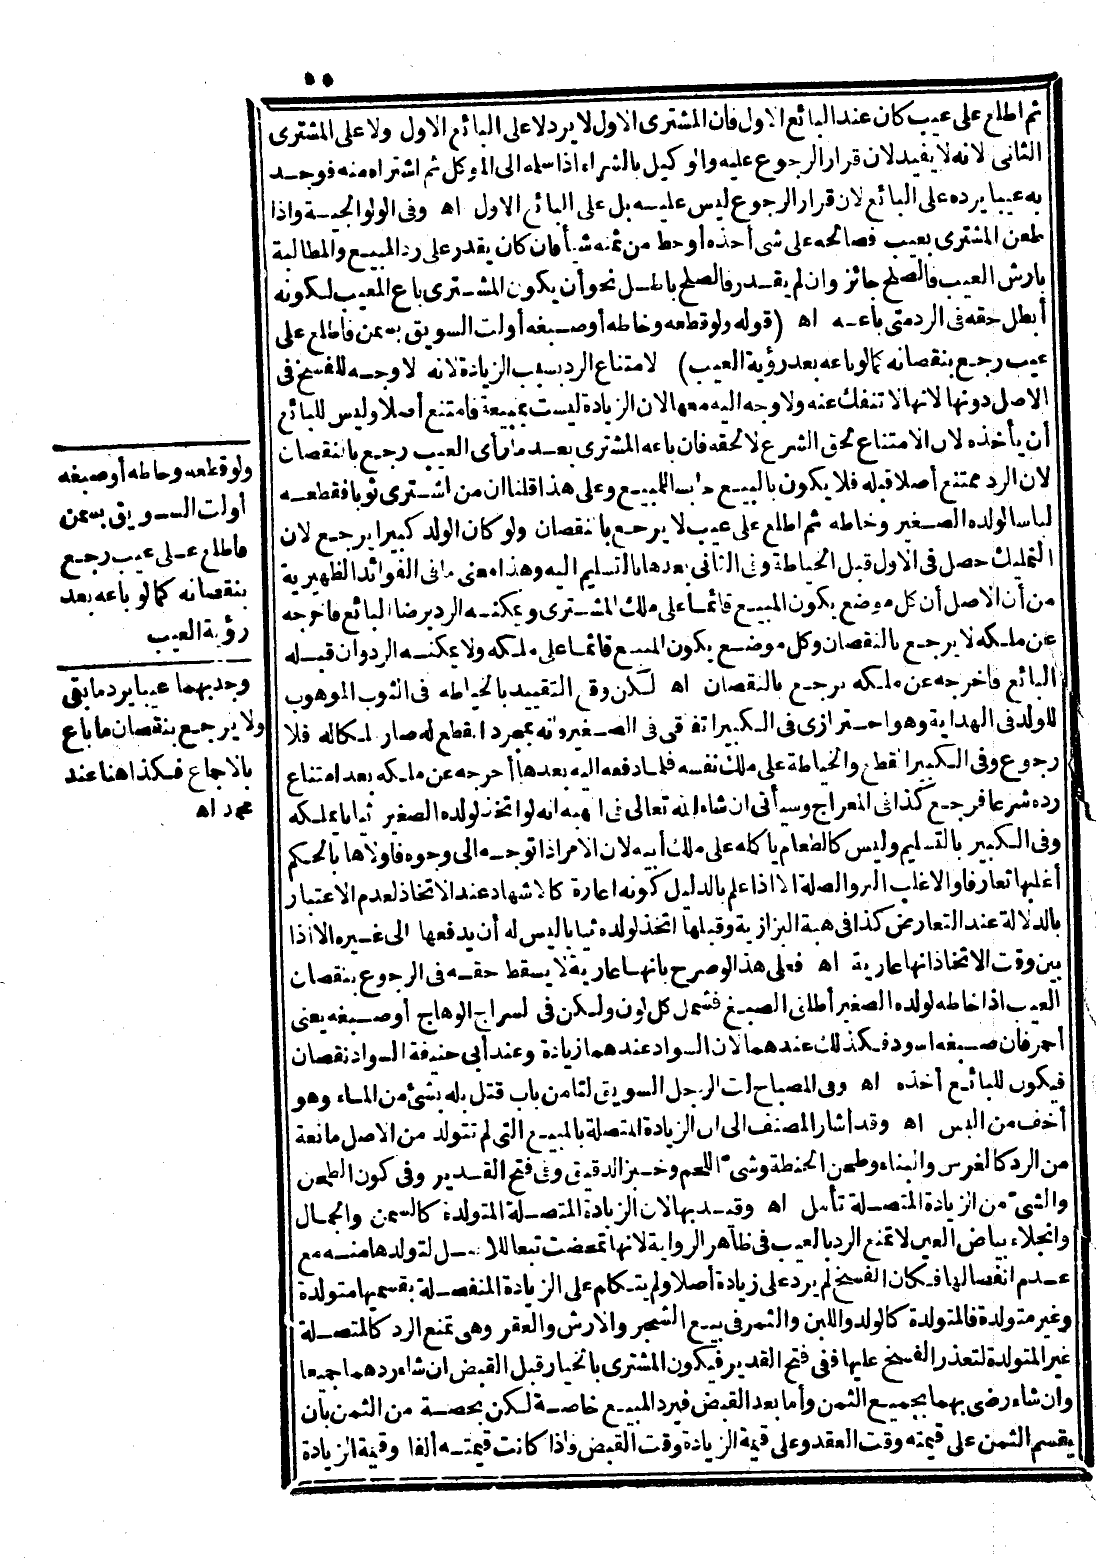 ٥٥
ثم اطلع على عيب كان عند البائع الاول فان المشترى الاول لا يرد لا على البائع الاول ولا على المشترى
الثانى لانه لا يفيد لان قرار الرجوع عليه والوكيل بالشراء اذا سلمه الى الموكل ثم اشتراه منه فوجد
به عيبا يرده على البائع لان قرار الرجوع ليس عليه بل على البائع الاول اه وفى الولوالجية واذا
طعن المشترى بعيب فصالحه على شئ أخذه أو حط من ثمنه شيأ فان كان يقدر على رد المبيع والمطالبة
بارش العيب فالصلح جائز وان لم يقدر فالصلح باطل نحو أن يكون المشترى باع المعيب لكونه
أبطل حقه فى الرد متى باعه اه (قوله ولو قطعه وخاطه أو صبغه أولت السويق بسمن فاطلع على
عيب رجع بنقصانه كالو باعه بعد رؤية العيب) لامتناع الرد بسبب الزيادة لانه لا وجه للفسخ فى
الاصل دونها لانها لا تنفك عنه ولا وجه اليه معها لان الزيادة ليست بمبيعة فامتنع أصلا وليس للبائع
أن يأخذه لان الامتناع لحق الشرع لا لحقه فان باعه المشترى بعد مارأى العيب رجع بالنقصان
لان الرد ممتنع أصلا قبله فلا يكون بالبيع حابسا للمبيع وعلى هذا قلنا ان من اشترى ثوبا فقطعه
لباسا لولده الصغير وخاطه ثم اطلع على عيب لا يرجع بالنقصان ولو كان الولد كبيرا يرجع لان
التمليك حصل فى الاول قبل الخياطة وفى الثانى بعدها بالتسليم اليه وهذا معنى مافى الفوائد الظهيرية
من أن الاصل أن كل موضع يكون المبيع قائما على ملك المشترى ويمكنه الرد برضا البائع فاخرجه
عن ملكه لا يرجع بالنقصان وكل موضع يكون المبيع قائما على ملكه ولا يمكنه الرد وان قبله
البائع فاخرجه عن ملكه يرجع بالنقصان اه لكن وقع التقييد بالخياطه فى الثوب الموهوب
للولد فى الهداية وهو احترازى فى الكبير اتفاقى فى الصغير فانه بمجرد القطع له صار لمكاله فلا
رجوع وفى الكبير القطع والخياطة على ملك نفسه فلما دفعه اليه بعدها أخرجه عن ملكه بعد امتناع
رده شرعا فرجع كذا فى المعراج وسيأتى ان شاء الله تعالى فى الهبة انه لو اتخذ لولده الصغير ثيابا يملكه
وفى الكبير بالتسليم وليس كالطعام يا كله على ملك أبيه لان الامر اذا توجه الى وجوه فاولاها بالحكم
أغلبها تعارفا والاغلب البر والصلة الا اذا علم بالدليل كونه اعارة كالاشهاد عند الاتخاذ لعدم الاعتبار
بالدلالة عند التعارض كذا فى هبة البزازية وقبلها اتخذ لولده ثيابا ليس له أن يدفعها الى غيره الا اذا
بين وقت الاتخاذ انها عارية اه فعلى هذا لو صرح بانها عارية لا يسقط حقه فى الرجوع بنقصان
العيب اذا خاطه لولده الصغير أطلق الصبغ فشمل كل لون ولكن فى السراج الوهاج أو صبغه يعنى
أحمر فان صبغه اسود فكذلك عندهما لان السواد عندهما زيادة وعند أبى حنيفة السواد نقصان
فيكون للبائع أخذه اه وفى المصباح لت الرجل السويق لتا من باب قتل بله بشئ من الماء وهو
أخف من البس اه وقد أشار المصنف الى ان الزيادة المتصلة بالمبيع التى لم تتولد من الاصل مانعة
من الرد كالغرس والبناء وطحن الحنطة وشى اللحم وخبز الدقيق وفى فتح القدير وفى كون الطحن
والشى من الزيادة المتصلة تأمل اه وقيد بها لان الزيادة المتصلة المتولدة كالسمن والجمال
وانجلاء بياض العين لا تمنع الرد بالعيب فى ظاهر الرواية لانها تمحضت تبعا للاصل لتولدها منه مع
عدم انفصالها فكان الفسخ لم يرد على زيادة أصلا ولم يتكلم على الزيادة المنفصلة بقسميها متولدة
وغير متولدة فالمتولدة كالولد واللبن والثمر فى بيع الشجر والارش والعقر وهى تمنع الرد كالمتصلة
غير المتولدة لتعذر الفسخ عليها ففى فتح القدير فيكون المشترى بالخيار قبل القبض ان شاء ردهما جميعا
وان شاء رضى بهما بجميع الثمن وأما بعد القبض فيرد المبيع خاصة لكن بحصة من الثمن بأن
يقسم الثمن على قيمته وقت العقد وعلى قيمة الزيادة وقت القبض فاذا كانت قيمته ألفا وقيمة الزيادة
ولو قطعه وخاطه أو صبغه
أولت السويق بسمن
فاطلع على عيب رجع
بنقصانه كما لو باعه بعد
رؤية العيب
وجد بهما عيبا يرد مابقى
ولا يرجع بنقصان ما باع
بالاجماع فكذا هنا عند
محمد اه